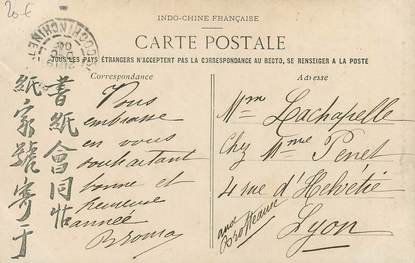 20€
INDO-CHINE FRANÇAISE
CARTE POSTALE
TOUS LES PAYS ÉTRANGERS N'ACCEPTENT PAS LA CORRESPONDANCE AU RECTO, SE RENSEIGNER A LA POSTE
Correspondance
Adresse
Vous
embrasse
en vous
souhaitant
bonne et
heureuse
année
書紙會同
紙家號寄于
Mme Lachapelle
Chez Mme Penet
4 rue d'Helvétie
aux Brotteaux
Lyon